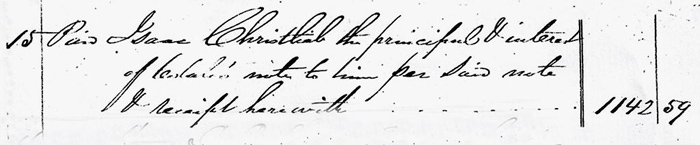 15 Paid Isaac Christlieb the principal & interest
of notes to him per said note
& receipt herewith . . . . . . . 1142 59